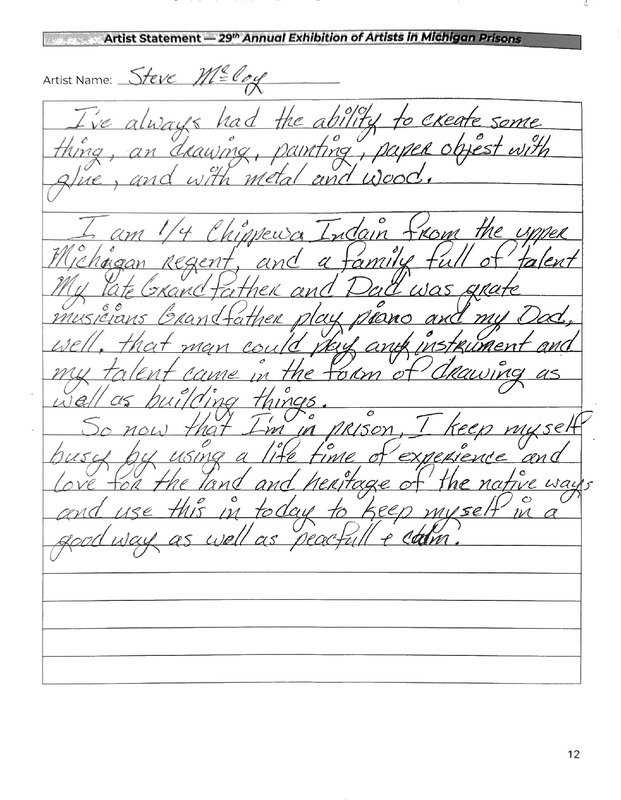 Artist Statement — 29th Annual Exhibition of Artists in Michigan Prisons
Artist Name: Steve McCoy
I've always had the ability to create some
thing, an drawing, painting, paper objest with
glue, and with metal and wood.
I am 1/4 Chippewa Indain from the upper
Michigan regent, and a family full of talent
My late Grandfather and Dad was grate
musicians Grandfather play piano and my Dad,
well. that man could pay any instrument and
my talent came in the form of drawing as
well as building things.
So now that I'm in prison, I keep myself
busy by using a life time of experience and
love for the land and heritage of the native ways
and use this in today to keep myself in a
good way as well as peacfull + calm.
12